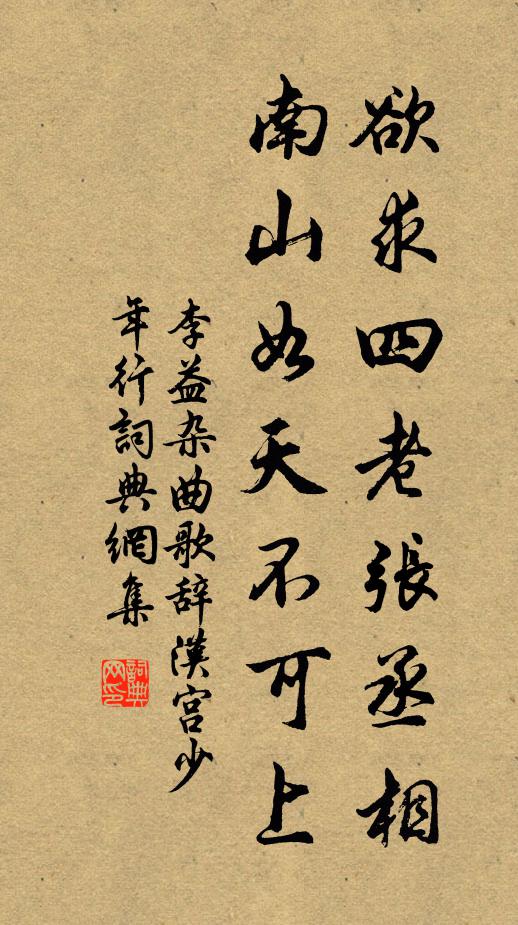 欲求四老張丞相
南山如天不可上
李益杂曲歌辞漢宫少
年行詞典網集
詞典网印